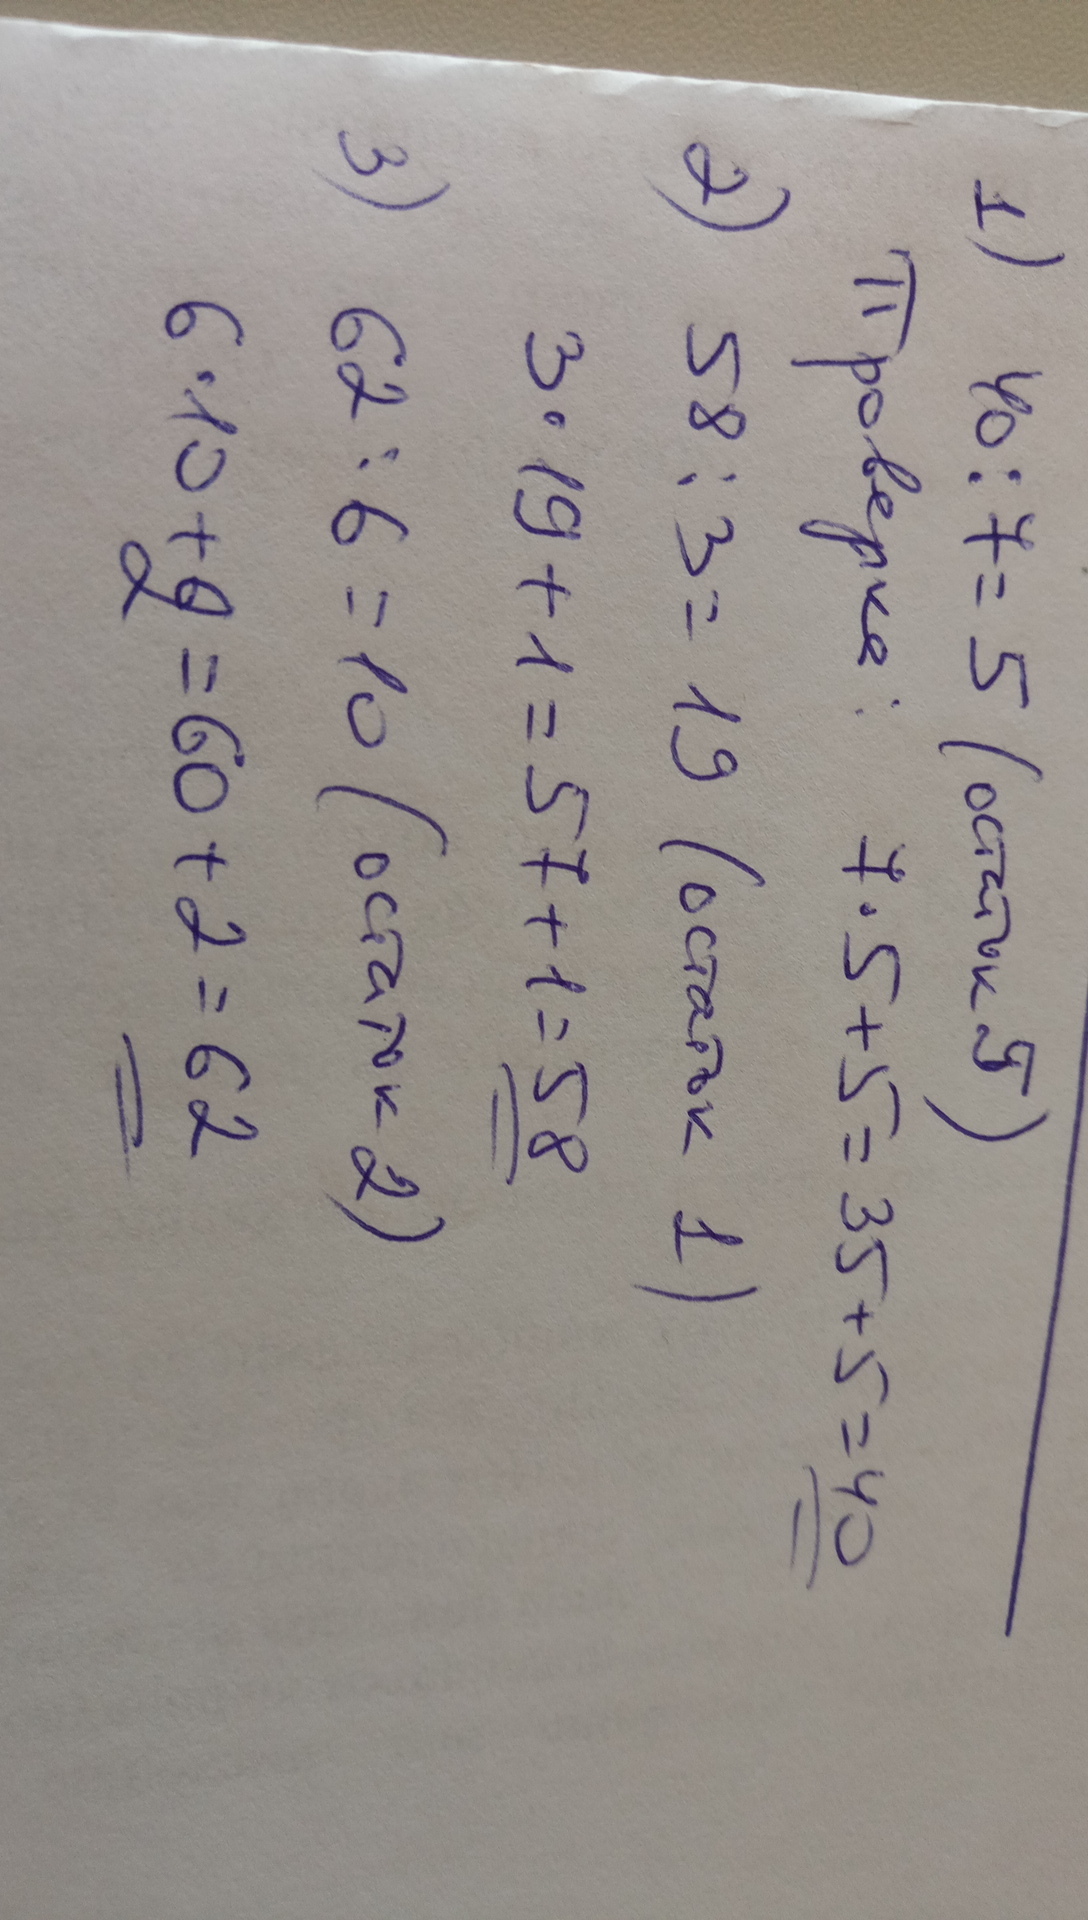 1) 40:7=5 (остаток 5)
Проверка: 7·5+5=35+5=40
2) 58:3=19 (остаток 1)
3·19+1=57+1=58
3) 62:6=10 (остаток 2)
6·10+2=60+2=62
2